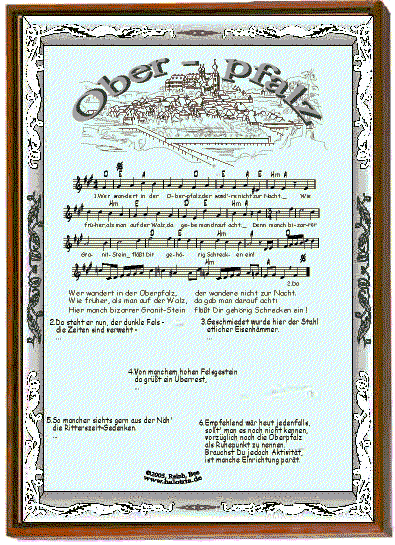 Ober - pfalz
D E A D E A E Hm A
1.Wer wandert in der O-ber-pfalz,der wand're nicht zur Nacht._ Wie
Hm E A Hm E A
früher,als man auf der Walz,da ge-be man drauf acht._ Denn manch bi-zar-rer
D E D E
Gra-nit-Stein_ flößt Dir ge-hö-rig Schrecken ein!
Hm A Hm A
2.Da
Wer wandert in der Oberpfalz, der wandere nicht zur Nacht.
Wie früher, als man auf der Walz, da gab man darauf acht!
Hier manch bizarrer Granit-Stein flößt Dir gehörig Schrecken ein!
2.Da steht er nun, der dunkle Fels -
die Zeiten sind verweht -
...
3.Geschmiedet wurde hier der Stahl
etlicher Eisenhämmer.
...
4.Von manchem hohen Felsgestein
da grüßt ein Überrest,
...
5.So mancher sieht's gern aus der Näh'
die Ritterszeit-Gedanken.
...
6.Empfehlend wär heut jedenfalls,
sollt' man es noch nicht kennen,
vorzüglich noch die Oberpfalz
als Ruhepunkt zu nennen.
Brauchst Du jedoch Aktivität,
ist manche Einrichtung parat.
©2005, Reinh, Ben
www.halotria.de